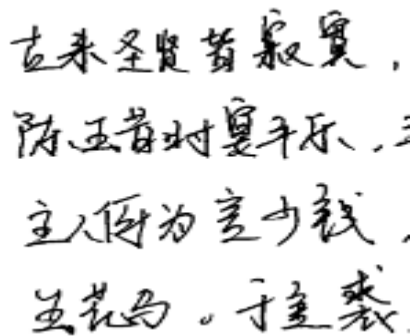 古来圣贤皆寂寞,
陈王昔时宴平乐,
主人何为言少钱,
五花马。千金裘